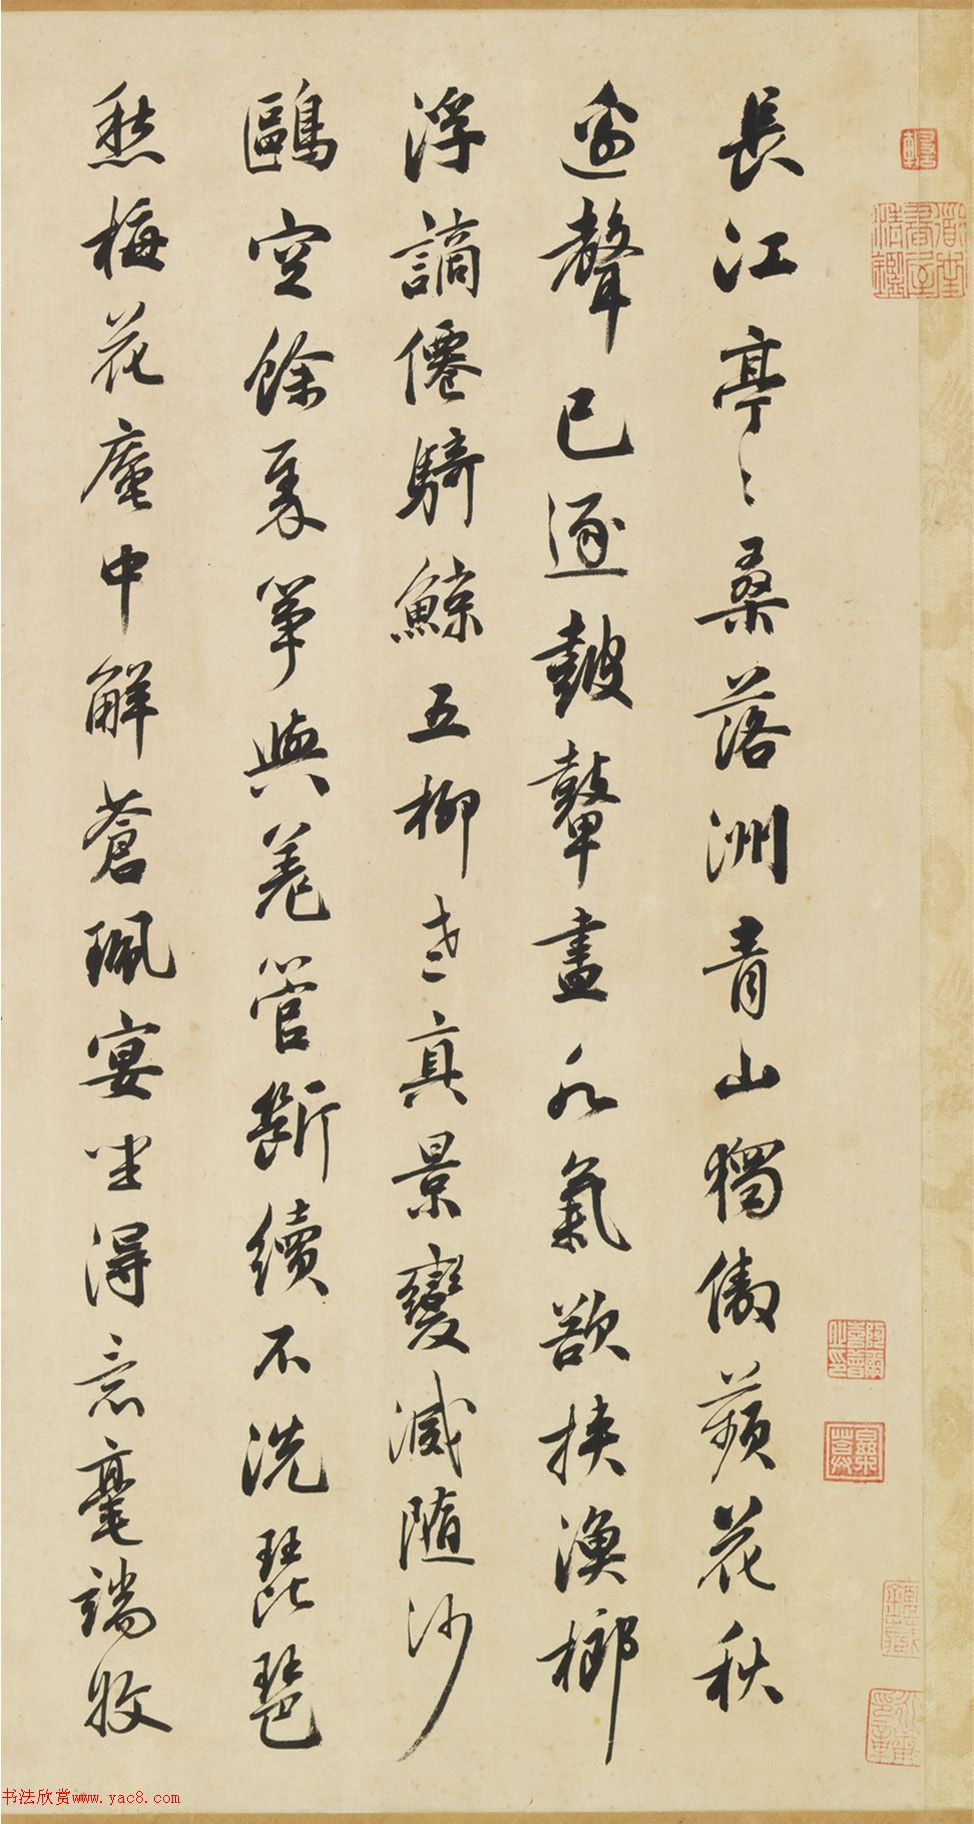 長江亭〻桑落洲青山獨傲蘋花秋
邊聲已逐鼓鼙盡水氣欲挾漁榔
浮謫僊騎鯨五柳去真景變滅隨沙
鷗空餘秦箏與羌管斷續不洗琵琶
愁梅花庵中解蒼珮宴坐得意毫端收
书法欣赏www.yac8.com